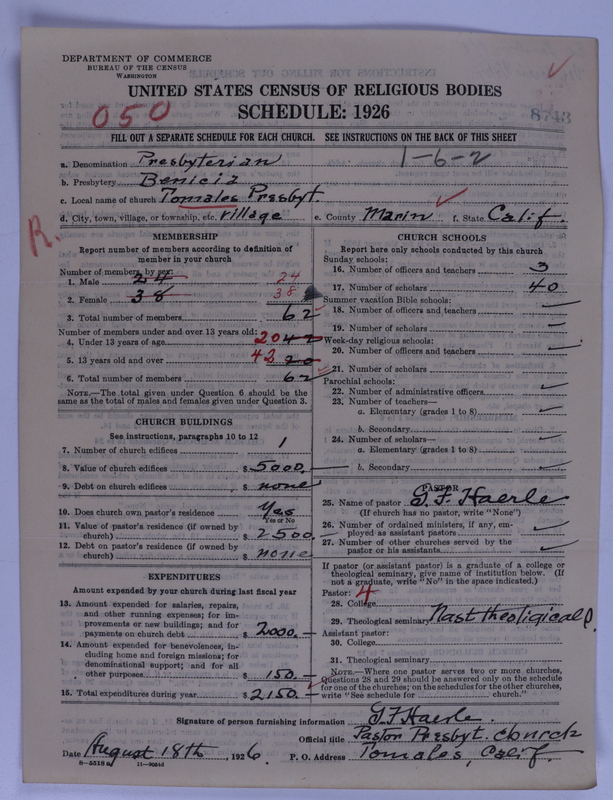 DEPARTMENT OF COMMERCE
BUREAU OF THE CENSUS
WASHINGTON
UNITED STATES CENSUS OF RELIGIOUS BODIES
SCHEDULE: 1926
050
8743
FILL OUT A SEPARATE SCHEDULE FOR EACH CHURCH. SEE INSTRUCTIONS ON THE BACK OF THIS SHEET
1-6-2
a. Denomination Presbyterian
b. Presbytery Benicia
c. Local name of church Tomales Presbyt.
d. City, town, village, or township, etc. village e. County Marin f. State Calif.
R.
MEMBERSHIP
Report number of members according to definition of member in your church
Number of members, by sex:
1. Male 24 24
2. Female 38 38
3. Total number of members 62
Number of members under and over 13 years old:
4. Under 13 years of age 20 42
5. 13 years old and over 42 20
6. Total number of members 62
NOTE.—The total given under Question 6 should be the same as the total of males and females given under Question 3.
CHURCH BUILDINGS
See instructions, paragraphs 10 to 12
7. Number of church edifices 1
8. Value of church edifices $ 5000.—
9. Debt on church edifices $ none
10. Does church own pastor's residence? Yes
Yes or No
11. Value of pastor's residence (if owned by church) $ 2500.
12. Debt on pastor's residence (if owned by church) $ none
EXPENDITURES
Amount expended by your church during last fiscal year
13. Amount expended for salaries, repairs, and other running expenses; for improvements or new buildings; and for payments on church debt $ 2000.—
14. Amount expended for benevolences, including home and foreign missions; for denominational support; and for all other purposes $ 150.—
15. Total expenditures during year $ 2150.—
CHURCH SCHOOLS
Report here only schools conducted by this church
Sunday schools:
16. Number of officers and teachers 3
17. Number of scholars 40
Summer vacation Bible schools:
18. Number of officers and teachers
19. Number of scholars
Week-day religious schools:
20. Number of officers and teachers
21. Number of scholars
Parochial schools:
22. Number of administrative officers
23. Number of teachers—
a. Elementary (grades 1 to 8)
b. Secondary
24. Number of scholars—
a. Elementary (grades 1 to 8)
b. Secondary
PASTOR
25. Name of pastor G. F. Haerle
(If church has no pastor, write "None")
26. Number of ordained ministers, if any, employed as assistant pastors
27. Number of other churches served by the pastor or his assistants
If pastor (or assistant pastor) is a graduate of a college or theological seminary, give name of institution below. (If not a graduate, write "No" in the space indicated.)
Pastor: 4
28. College
29. Theological seminary Nast theoligical
Assistant pastor:
30. College
31. Theological seminary
NOTE.—Where one pastor serves two or more churches, Questions 28 and 29 should be answered only on the schedule for one of the churches; on the schedules for the other churches, write "See schedule for church."
Signature of person furnishing information G. F. Haerle.
Official title Pastor Presbyt. church
Date August 18th, 1926. P. O. Address Tomales, Calif.